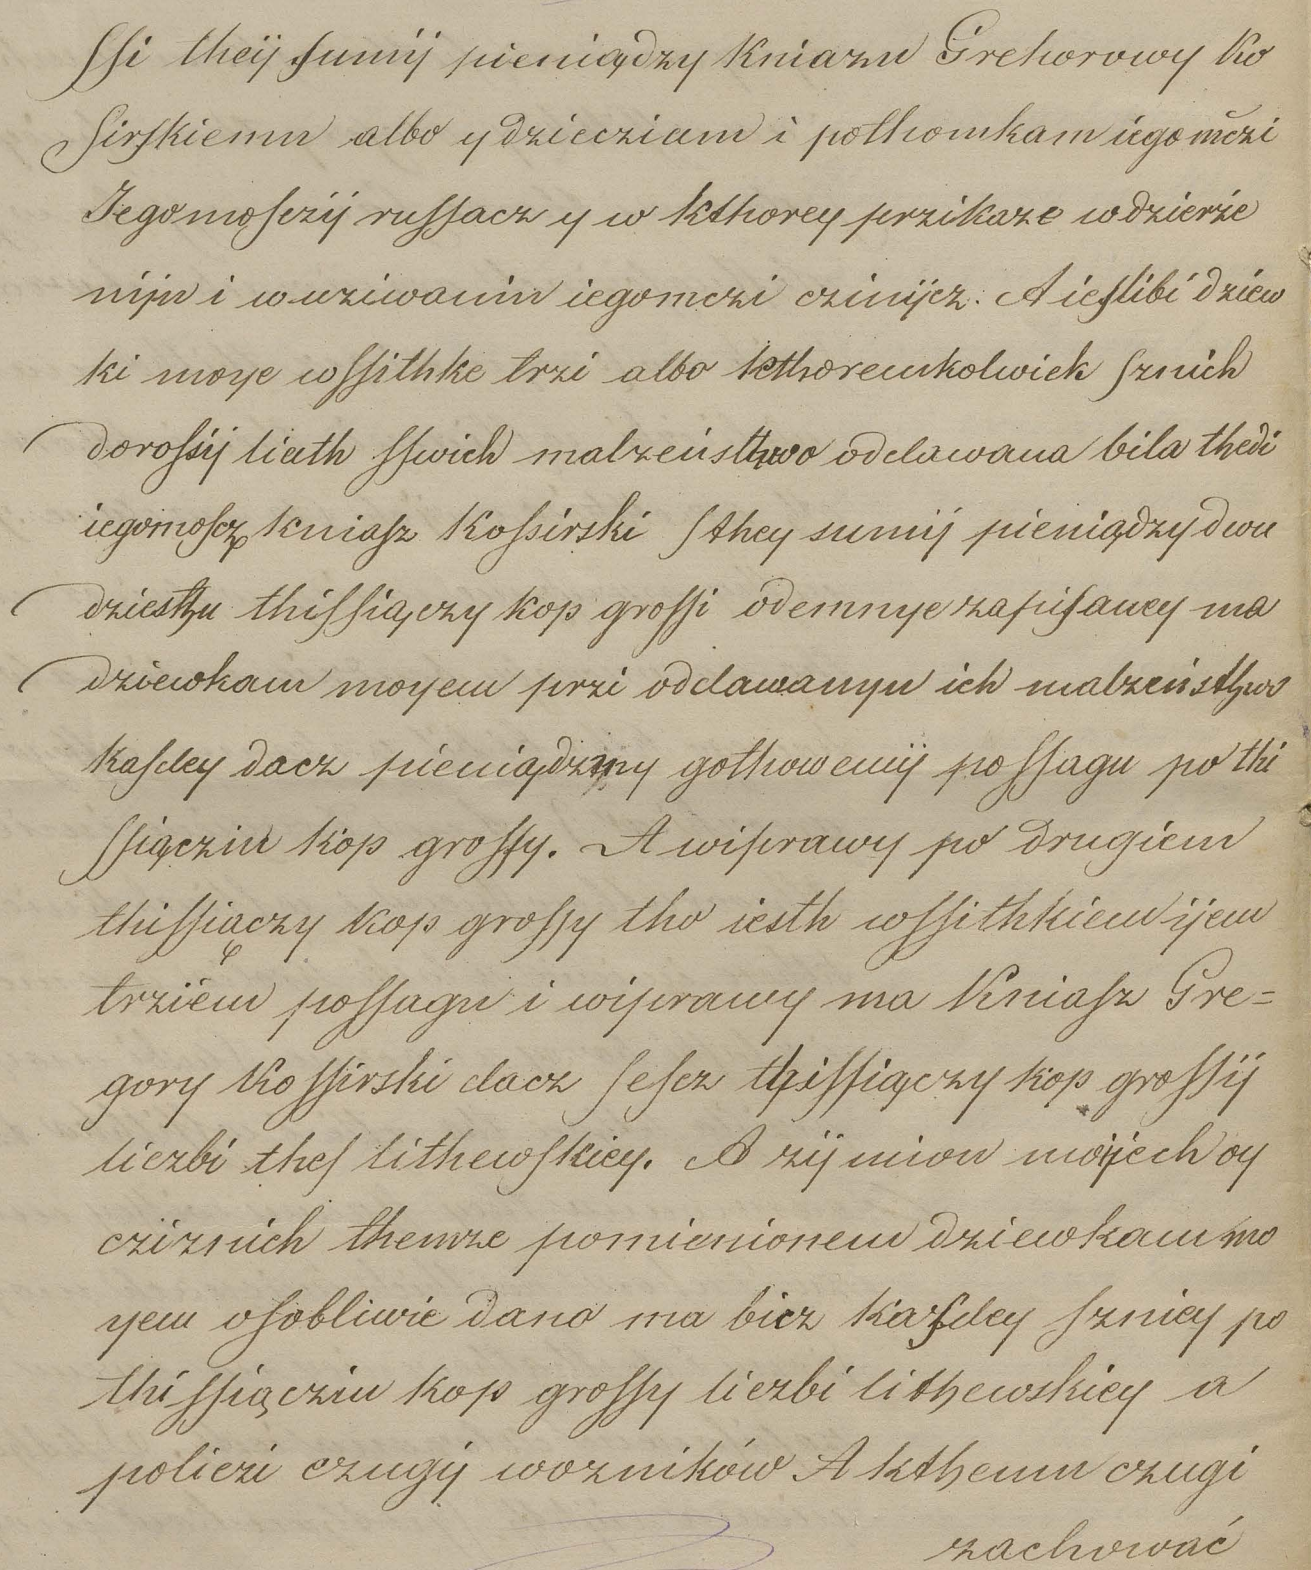 ſſi theÿ ſumij pieniądzy Kniazu Grehorowy Ko
ſirſkiemu albo y dziecziam i pothomkam iego mczi
Jegomoſczij ruſſacz y w kthorey przikaze w dzierże
niju i w uziwaniu iegomczi cziniÿcz. A ieſlibi dziew
ki moye wſſithke trzi albo kthoremkolwiek ſznich
doroſsij liath ſſwich malzeństhwo oddawana bila thedi
iegomoſcz kniaſz Koſsirski ſthey sumij pieniądzy dwu
dziesthu thiſſiączy kop groſſi odemnye zapiſaney ma
dziewkam moyem przi oddawanyu ich malzeństhwo
kaſdey dacz pieniądzmy gothowemÿ poſſagu po thi
ſſiącziu kop groſſy. A wiprawy po drugiem
thiſſiączy kop groſſy tho iesth wſſithkiem ijem
trziem poſſagu i wiprawy ma Kniaſz Gre=
gory Koſſirski dacz ſeſcz thiſſiączy kop groſſij
liczbi theſ lithewſkiey. A zij mion moijech oy
cziznich themze pomienionem dziewkam mo
yem oſobliwie dano ma bicz kaſdey ſzniey po
thiſſiącziu kop groſſy liczbi lithewskiey a
policzi czugij wozników A kthemu czugi
zachować